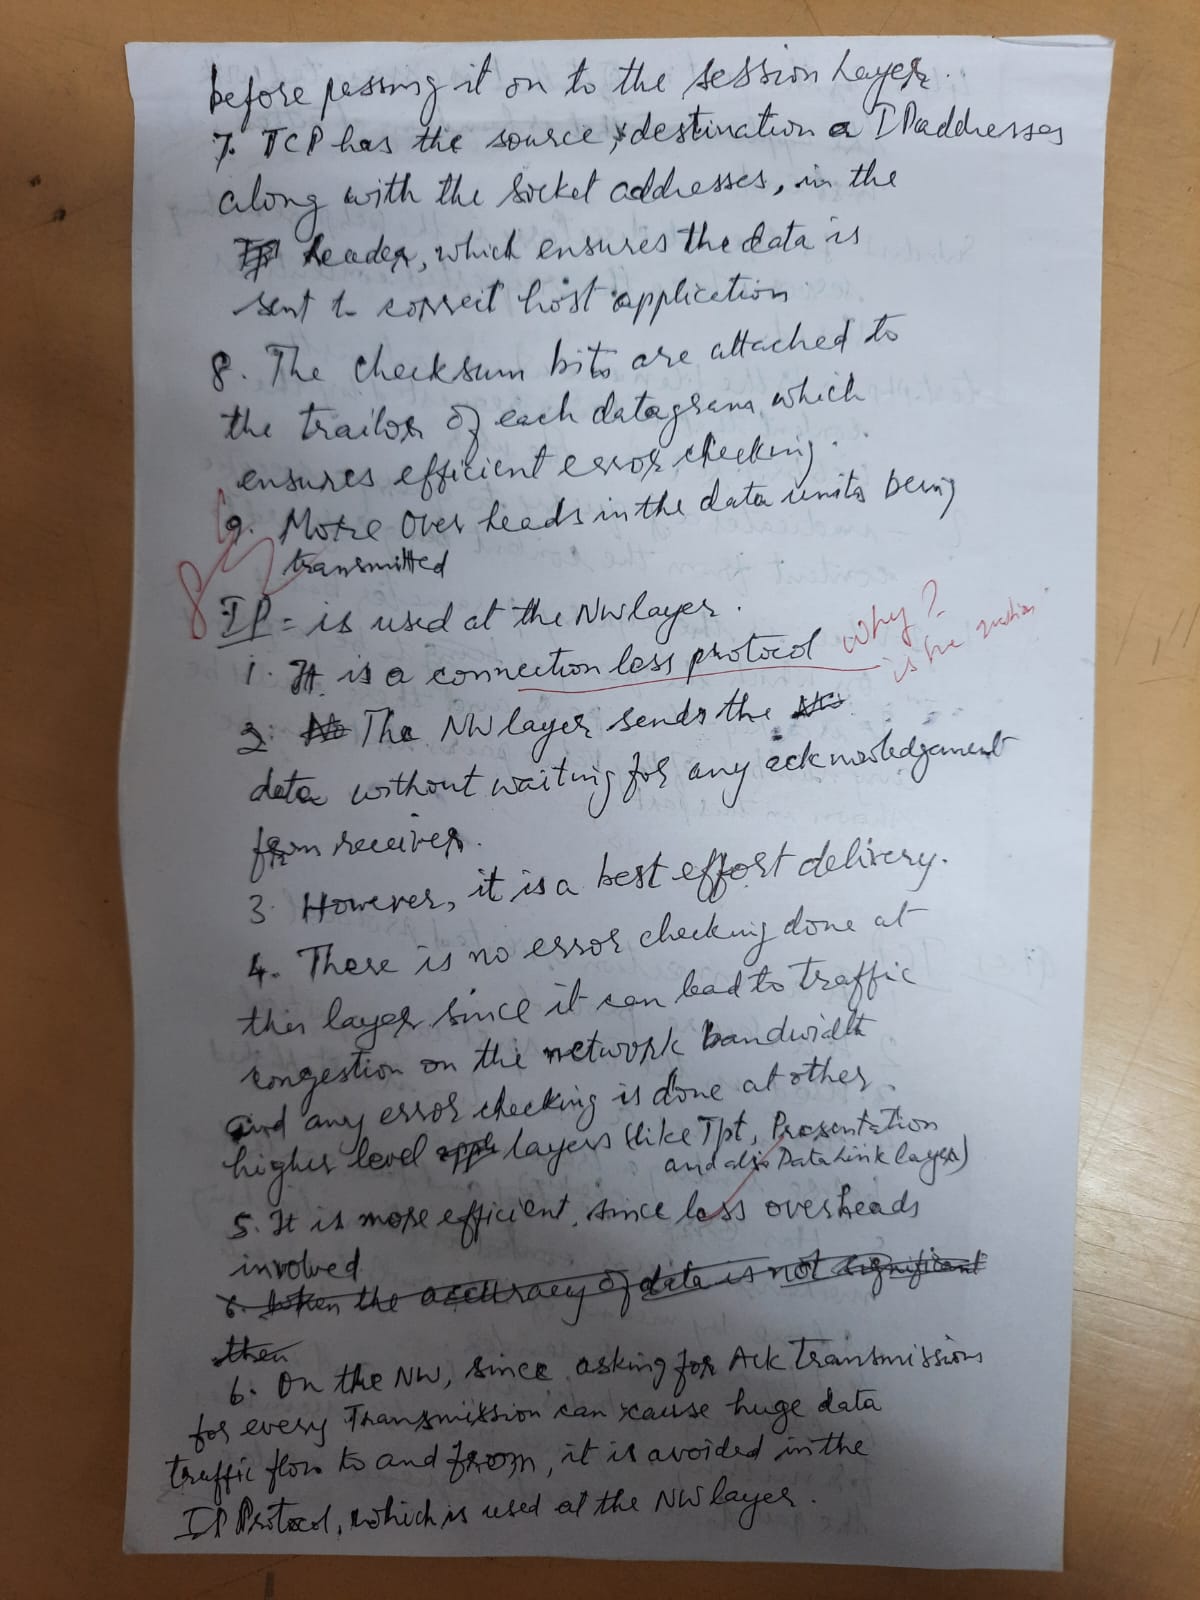 before passing it on to the session Layer.
7. TCP has the source & destination IP addresses
along with the socket addresses, in the
header, which ensures the data is
sent to correct host application
8. The checksum bits are attached to
the trailor of each datagram, which
ensures efficient error checking.
9. More Over heads in the data units being
transmitted
IP - is used at the NW layer.
1. It is a connection less protocol why?
is the question
2. The NW layer sends the
data without waiting for any acknowledgement
from receiver.
3. However, it is a best effort delivery.
4. There is no error checking done at
this layer since it can lead to traffic
congestion on the network bandwidth
and any error checking is done at other
higher level layers (like Tpt, Presentation
and also Data Link layer)
5. It is more efficient, since less overheads
involved
6. When the accuracy of data is not significant
then
6. On the NW, since asking for Ack transmissions
for every Transmission can cause huge data
traffic flow to and from, it is avoided in the
IP Protocol, which is used at the NW layer.